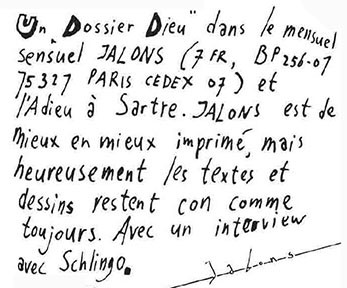 Un "Dossier Dieu" dans le mensuel
sensuel JALONS (7 FR, BP 256-07
75327 PARIS CEDEX 07) et
l'Adieu à Sartre. JALONS est de
mieux en mieux imprimé, mais
heureusement les textes et
dessins restent con comme
toujours. Avec un interview
avec Schlingo.
Jalons